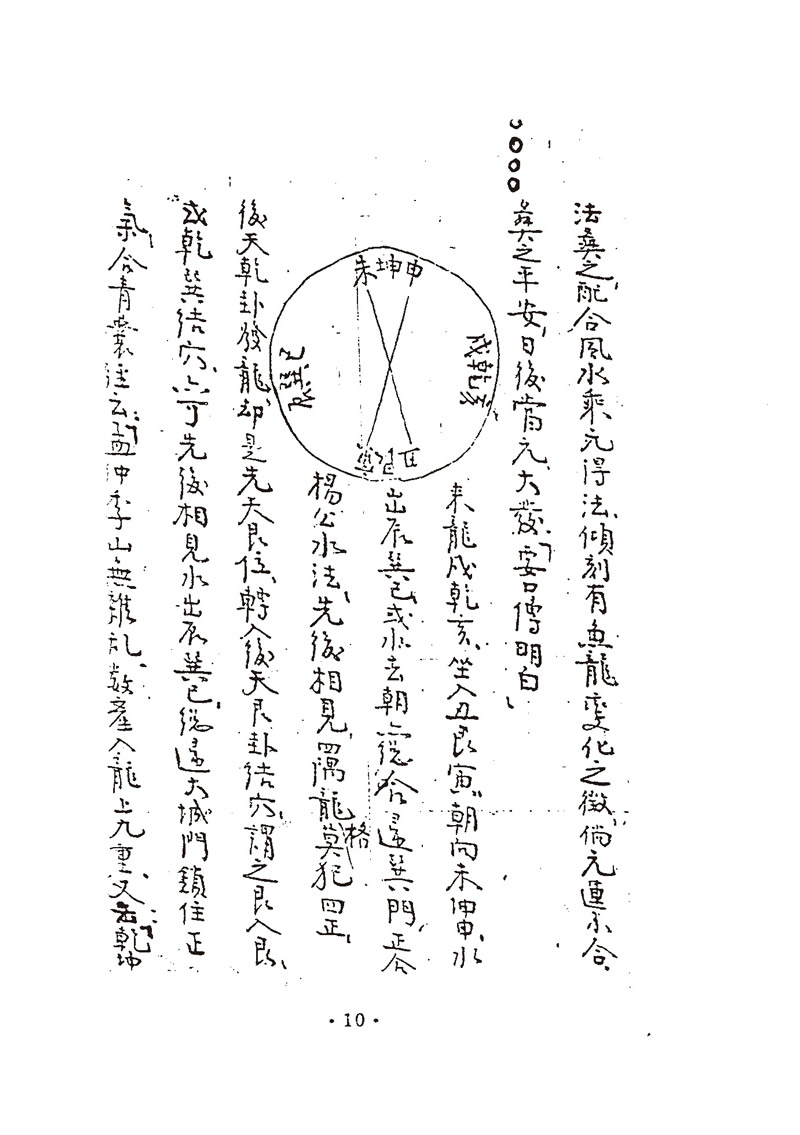 法葬之配合風水乘元得法、傾刻有魚龍變化之徵、倘元運不合、
葬之平安、日後當元大發、要口傳明白、
未坤申
戌乾亥
丑艮寅
辰巽巳
来龍戌乾亥、坐入丑艮寅、朝向未坤申、水
出辰巽巳、或水去朝 合 巽門、正合
楊公水法、先後相見、四隅龍格莫犯四正、
後天乾卦發龍、却是先天艮位、轉入後天艮卦結穴、謂之艮入艮、
或乾巽結穴、六可先後相見水出辰巽巳、總 大城門鎖住正
氣、合青囊經云、孟仲季山無雜乱、数產入龍上九重、又云乾坤
·10·